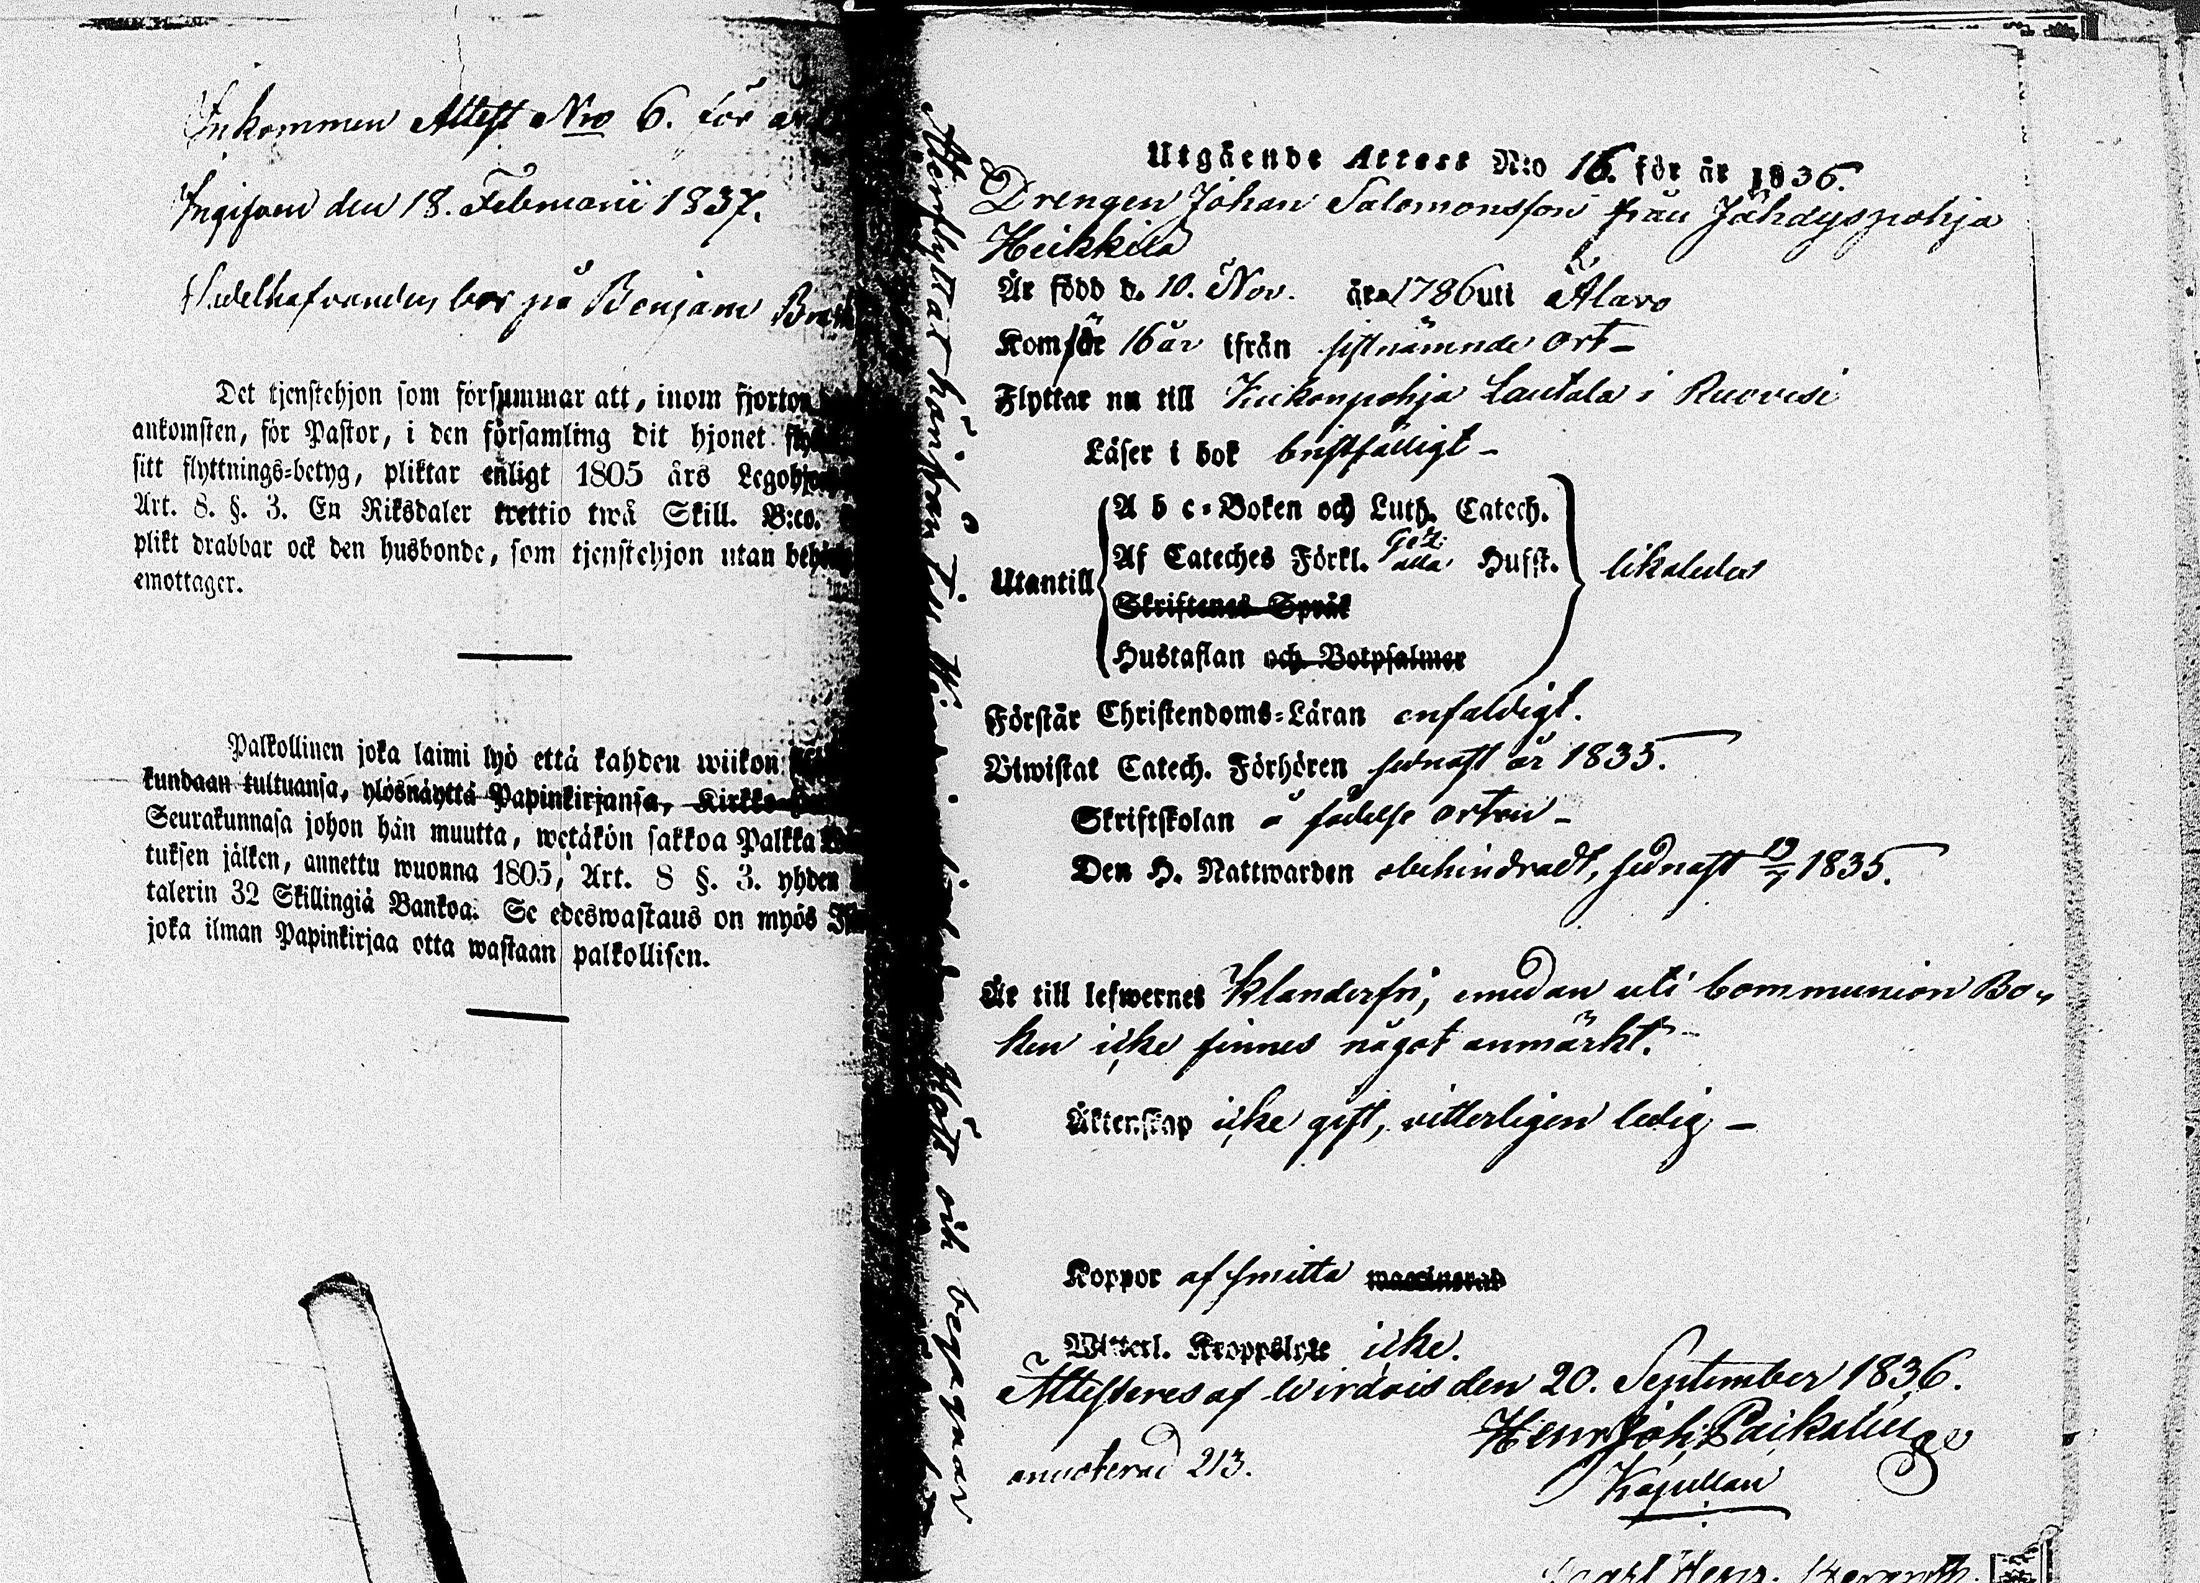 Inkommen Attest Nro 6. för
Ingifven den 18. Februarii 1837.
bor på Benjam
Det tjenstehjon som försummar att, inom fjorton
ankomsten, för Pastor, i den församling dit hjonet
sitt flyttnings=betyg, pliktar enligt 1805 års
Art. 8. §. 3. En Riksdaler trettio twå Skill. B:co.
plikt drabbar ock den husbonde, som tjenstehjon utan
emottager.
Palkollinen joka laimi lyö että kahden wiikon
kundaan tultuansa, ylösnäyttä Papinkirjansa,
Seurakunnasa johon hän muutta, wetäkön sakkoa Palkka
tuksen jälken, annettu wuonna 1805, Art. 8 §. 3. yhden
talerin 32 Skillingiä Bankoa. Se edeswastaus on myös
joka ilman Papinkirjaa otta wastaan palkollisen.
Återflyttar härifrån till
och
Utgående Attest N:o 16. för år 1836.
Drengen Johan Salomonsson från Jähdyspohja
Heikkilä
Är född d. 10. Nov. åra 1786 uti Alavo
Kom för 16 år ifrån sistnämnde ort—
Flyttar nu till Kuckonpohja Lautala i Ruovesi
Läser i bok bristfälligt—
Utantill
A b c=Boken och Luth. Catech.
Af Cateches Förkl. alla Husst.
Skriftenes Språk
Hustaflan och Botpsalmer
likaledes
Förstår Christendoms=Läran enfaldigt.
Biwistat Catech. Förhören sednast år 1835.
Skriftskolan å födelse orten—
Den H. Nattwarden obehindradt, sednast 19/7 1835.
Är till lefwernet Klanderfri, emedan uti Communion Bo-
ken icke finnes något anmärkt.
Äktenskap icke gift, vitterligen ledig—
Koppor af smitta waccinerad
Witterl. Kroppslyte icke.
Attesteres af Wirdois den 20. September 1836.
Henr. Joh.
annoterad 213.
Kapellan